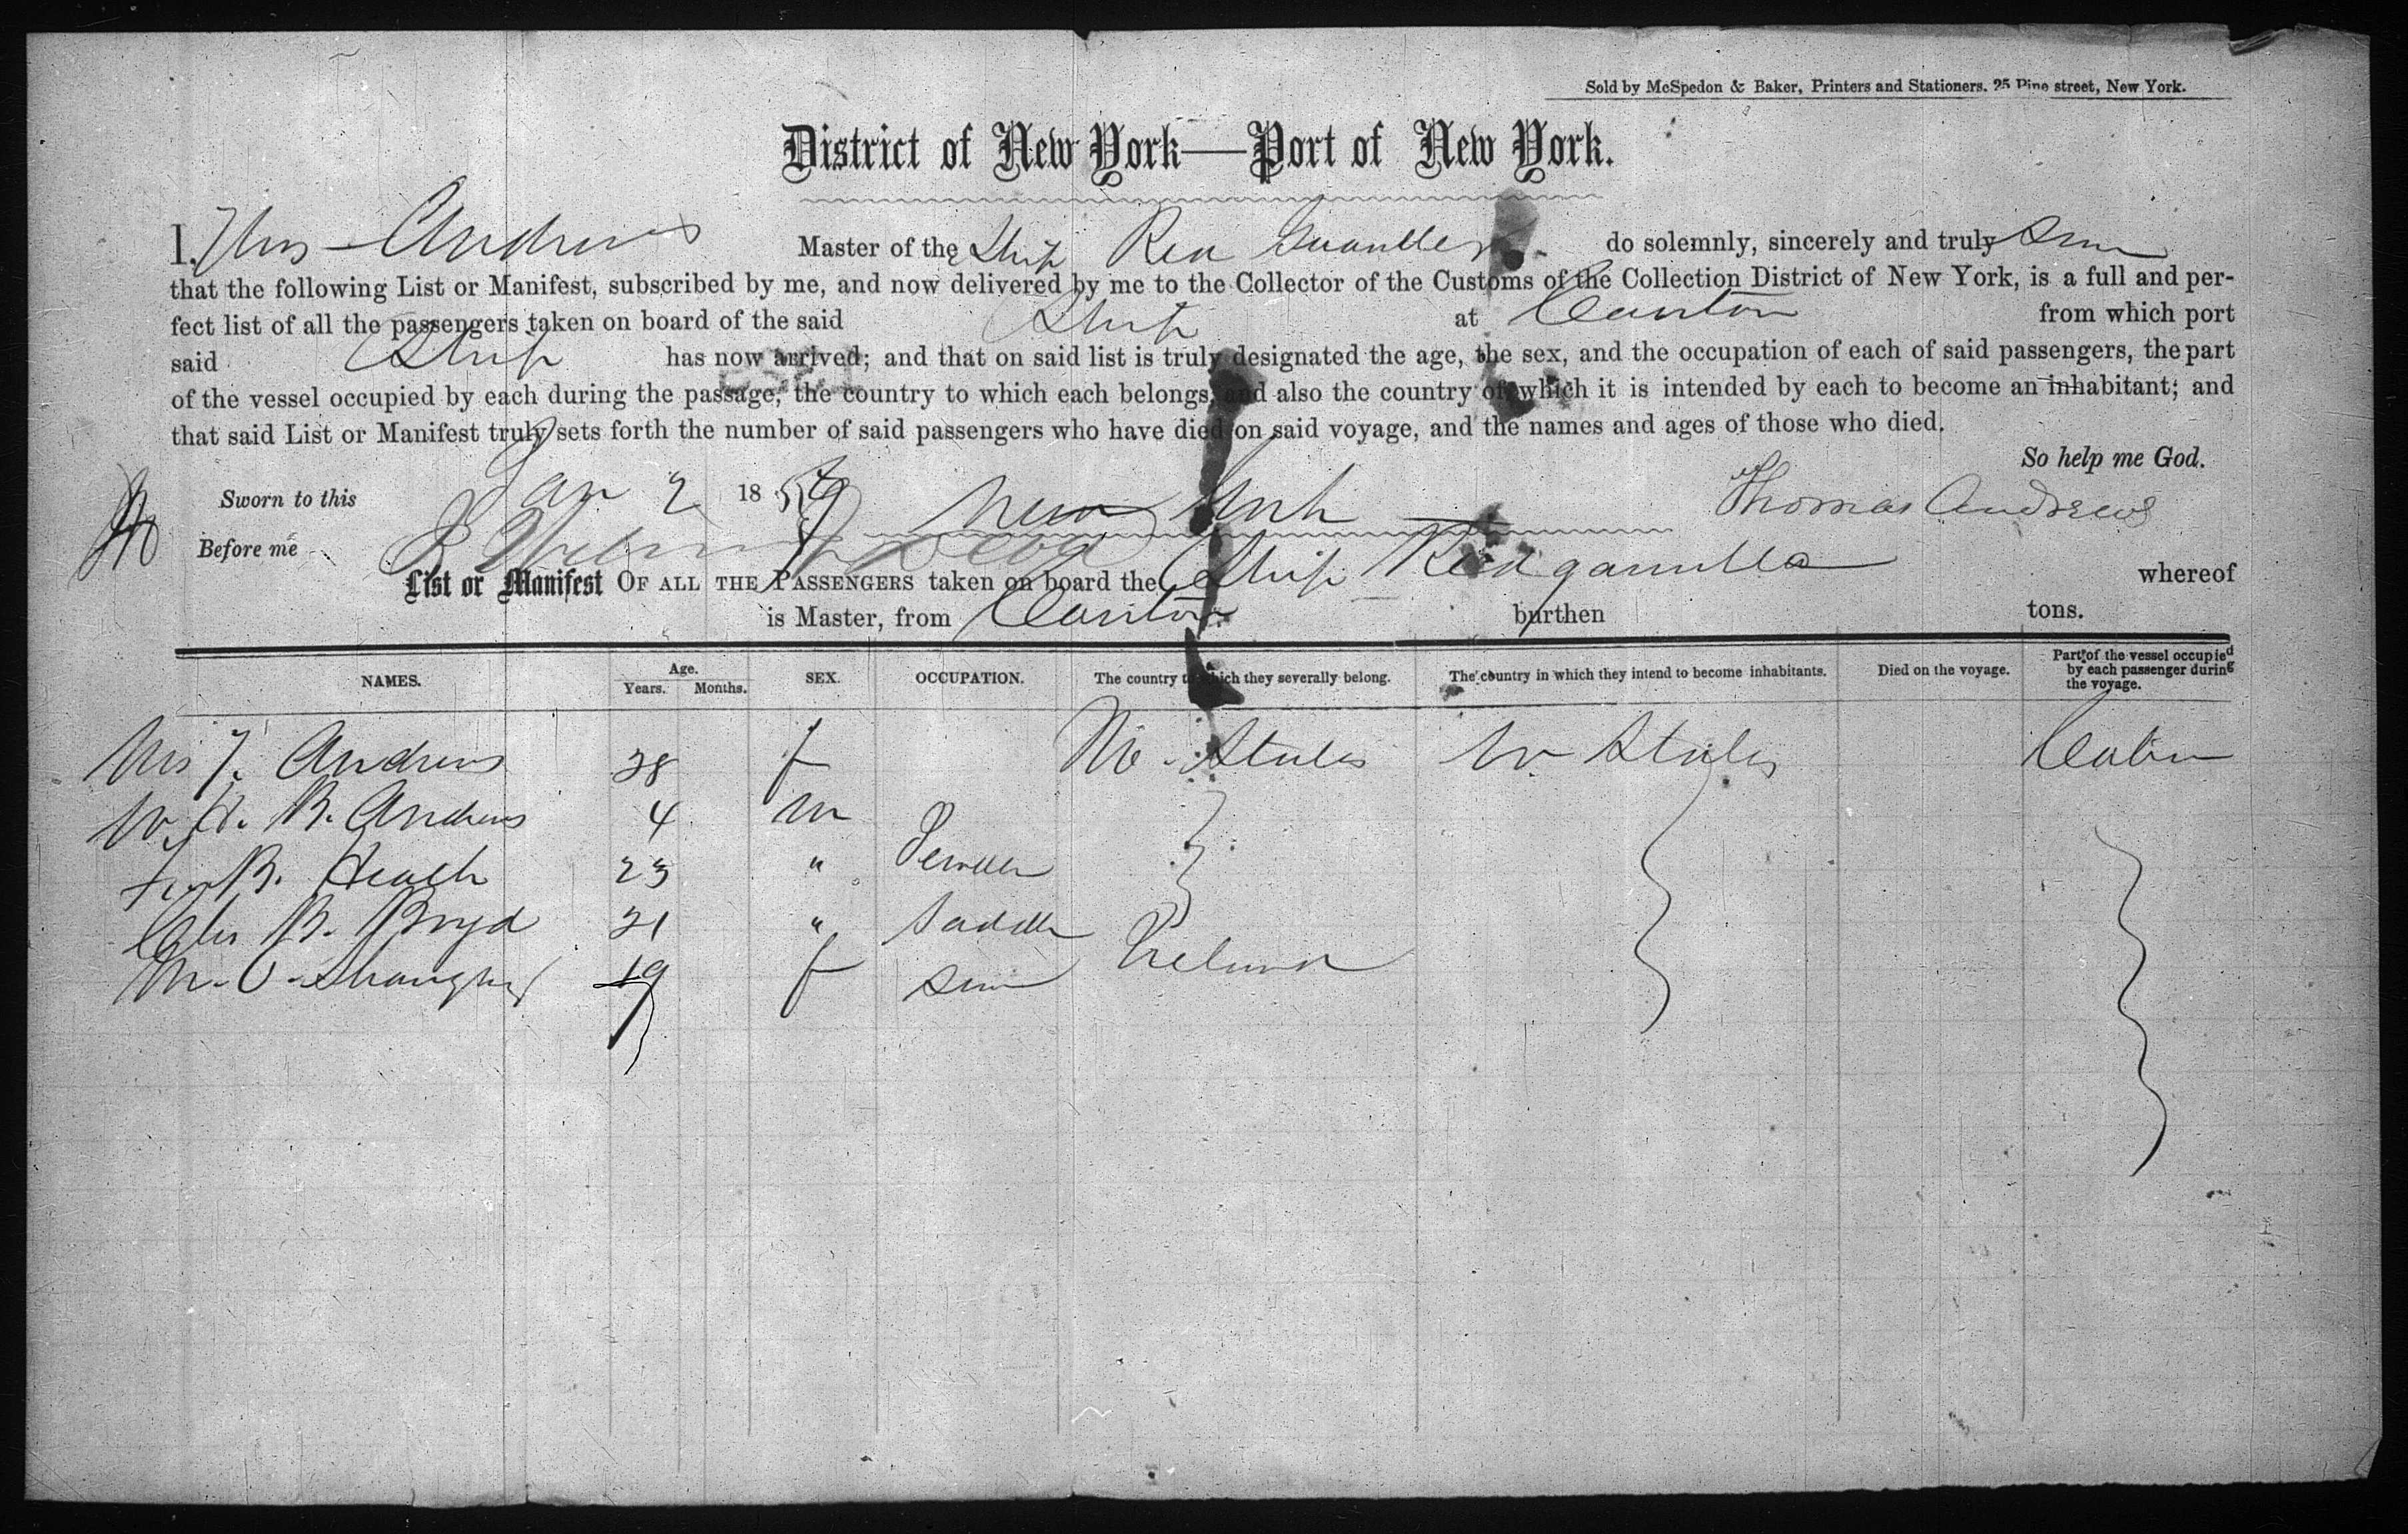 Sold by McSpedon & Baker, Printers and Stationers. 25 Pine street, New York.
District of New York—Port of New York.
I, Thos Andrews Master of the Ship do solemnly, sincerely and truly
that the following List or Manifest, subscribed by me, and now delivered by me to the Collector of the Customs of the Collection District of New York, is a full and per-
fect list of all the passengers taken on board of the said Ship at Canton from which port
said Ship has now arrived; and that on said list is truly designated the age, the sex, and the occupation of each of said passengers, the part
of the vessel occupied by each during the passage, the country to which each belongs, and also the country of which it is intended by each to become an inhabitant; and
that said List or Manifest truly sets forth the number of said passengers who have died on said voyage, and the names and ages of those who died.
So help me God.
Sworn to this Jan 2 18 New York Thomas Andrews
Before me
List or Manifest OF ALL THE PASSENGERS taken on board the Ship whereof
is Master, from Canton burthen tons.
NAMES. Age. Years. Months. SEX. OCCUPATION. The country to which they severally belong. The country in which they intend to become inhabitants. Died on the voyage. Part of the vessel occupied by each passenger during the voyage.
Mrs T. Andrews 38 f States States Cabin
W. H. B. Andrews 4 m
B. Heath 23 "
B. Boyd 21 "
M. O. 19 f Ireland